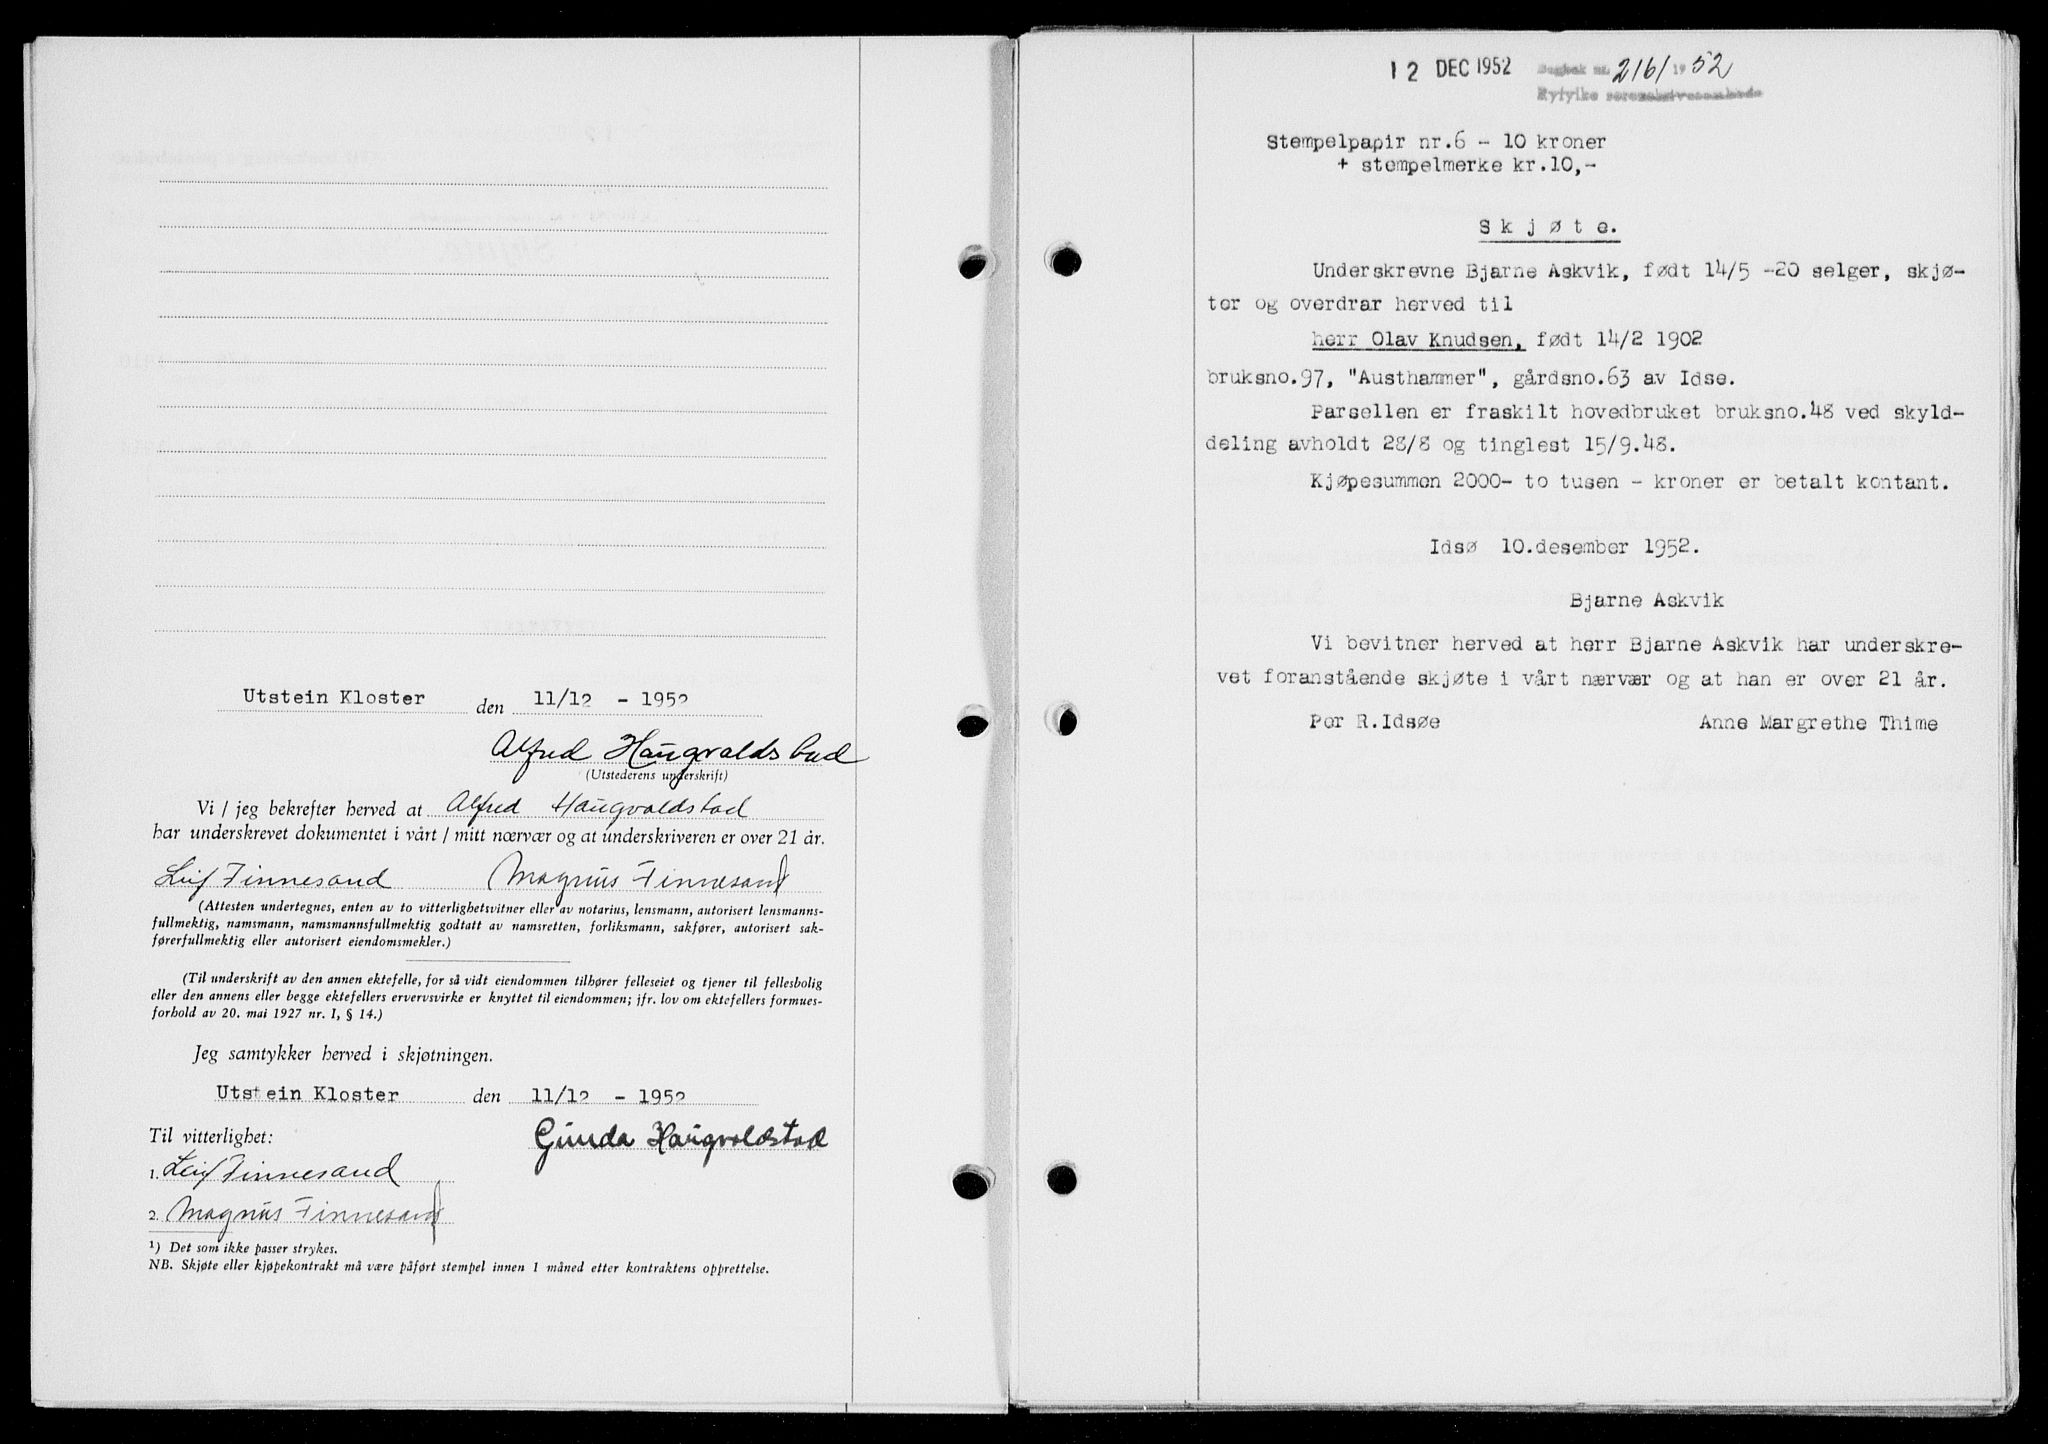 Utstein Kloster den 11/12 - 1952
Alfred Haugvaldstad
(Utstederens underskrift)
Vi / jeg bekrefter herved at Alfred Haugvaldstad
har underskrevet dokumentet i vårt / mitt nærvær og at underskriveren er over 21 år.
Leif Finnesand Magnus Finnesand
(Attesten undertegnes, enten av to vitterlighetsvitner eller av notarius, lensmann, autorisert lensmanns-
fullmektig, namsmann, namsmannsfullmektig godtatt av namsretten, forliksmann, sakfører, autorisert sak-
førerfullmektig eller autorisert eiendomsmekler.)
(Til underskrift av den annen ektefelle, for så vidt eiendommen tilhører felleseiet og tjener til fellesbolig
eller den annens eller begge ektefellers ervervsvirke er knyttet til eiendommen; jfr. lov om ektefellers formues-
forhold av 20. mai 1927 nr. 1, § 14.)
Jeg samtykker herved i skjøtningen.
Utstein Kloster den 11/12 - 1952
Til vitterlighet:
Gunda Haugvaldstad
1. Leif Finnesand
2. Magnus Finnesand
1) Det som ikke passer strykes.
NB. Skjøte eller kjøpekontrakt må være påført stempel innen 1 måned etter kontraktens opprettelse.
12 DEC 1952 Dagbok nr. 2161 1952
Ryfylke sorenskriverembede
Stempelpapir nr.6 - 10 kroner
+ stempelmerke kr.10,-
Skjøte.
Underskrevne Bjarne Askvik, født 14/5 -20 selger, skjø-
ter og overdrar herved til
herr Olav Knudsen, født 14/2 1902
bruksno.97, "Austhammer", gårdsno.63 av Idse.
Parsellen er fraskilt hovedbruket bruksno.48 ved skyld-
deling avholdt 28/8 og tinglest 15/9.48.
Kjøpesummen 2000- to tusen - kroner er betalt kontant.
Idsø 10.desember 1952.
Bjarne Askvik
Vi bevitner herved at herr Bjarne Askvik har underskre-
vet foranstående skjøte i vårt nærvær og at han er over 21 år.
Per R.Idsøe Anne Margrethe Thime